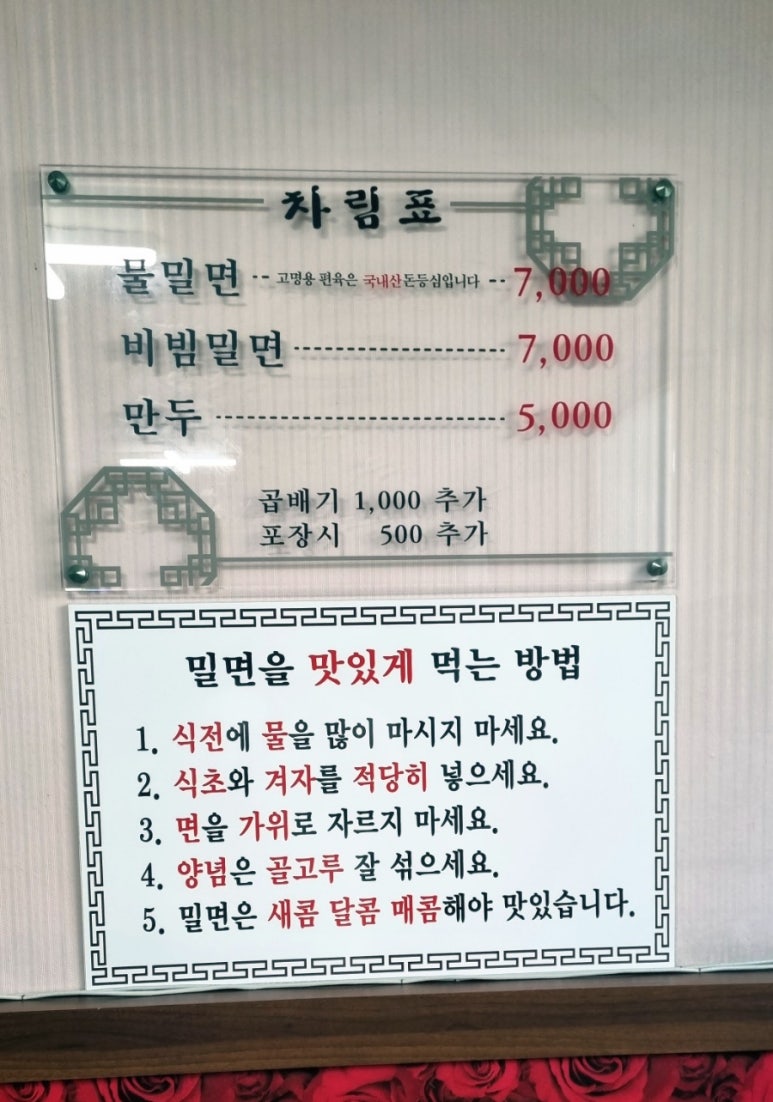 차림표
물밀면 -- 고명용 편육은 국내산돈등심입니다 -- 7,000
비빔밀면 ------------------------ 7,000
만두 -------------------------------- 5,000
곱배기 1,000 추가
포장시 500 추가
밀면을 맛있게 먹는 방법
1. 식전에 물을 많이 마시지 마세요.
2. 식초와 겨자를 적당히 넣으세요.
3. 면을 가위로 자르지 마세요.
4. 양념은 골고루 잘 섞으세요.
5. 밀면은 새콤 달콤 매콤해야 맛있습니다.